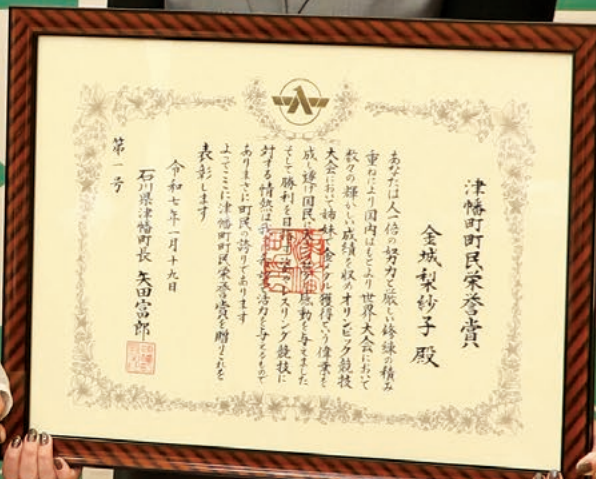 津幡町町民栄誉賞
金城梨紗子 殿
あなたは人一倍の努力と厳しい修練の積み
重ねにより国内はもとより世界大会において
数々の輝かしい成績を収めオリンピック競技
大会において姉妹で金メダル獲得という偉業を
成し遂げ国民に大きな夢と感動を与えました
そして勝利を目指す姿やレスリング競技に
対する情熱は我 活力を与えるもので
ありまさに町民の誇りであります
よってここに津幡町町民栄誉賞を贈りこれを
表彰します
令和七年一月十九日
石川県津幡町長 矢田富郎
第一号